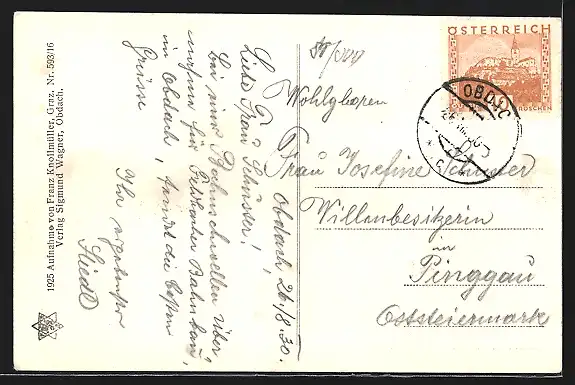 1925 Aufnahme von Franz Knollmüller, Graz. Nr. 593/16
Verlag Sigmund Wagner, Obdach.
Obdach, 26/8.30.
Liebe Frau Schuster!
bei einer Bahnschwellen über,
nahme für Bahnbau,
in Obdach, sendet die besten
Grüsse
Ihr ergebenster
Riedl
ÖSTERREICH
GROSCHEN
OBDACH
Wohlgboren
Frau Josefine Schuster
Villenbesitzerin
in
Pinggau
Oststeiermark